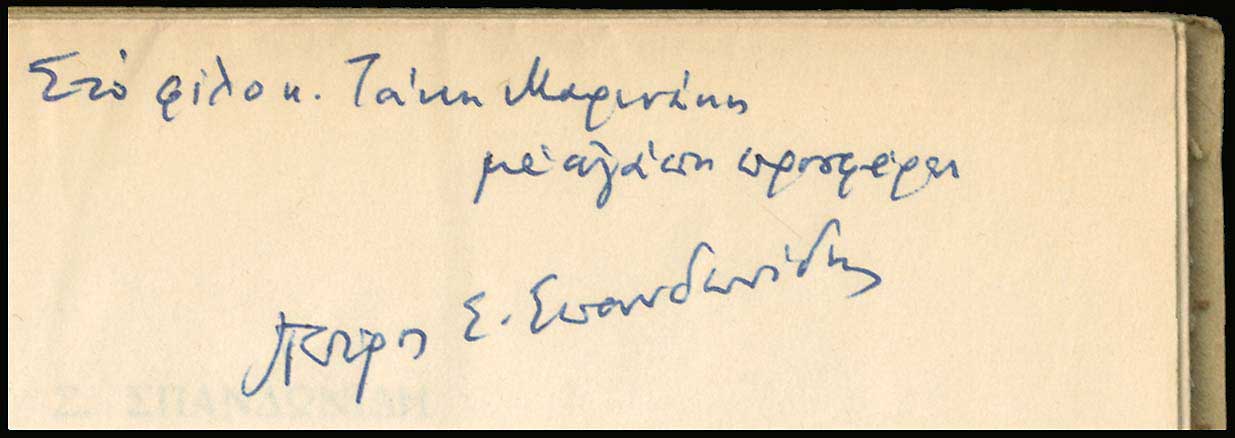 Στὸ φίλο κ. Τάκη Μαρινάκη
μὲ ἀγάπη προσφέρει
Πέτρος Σ. Σπανδωνίδης
Σ. ΣΠΑΝΔΩΝΙΔΗ